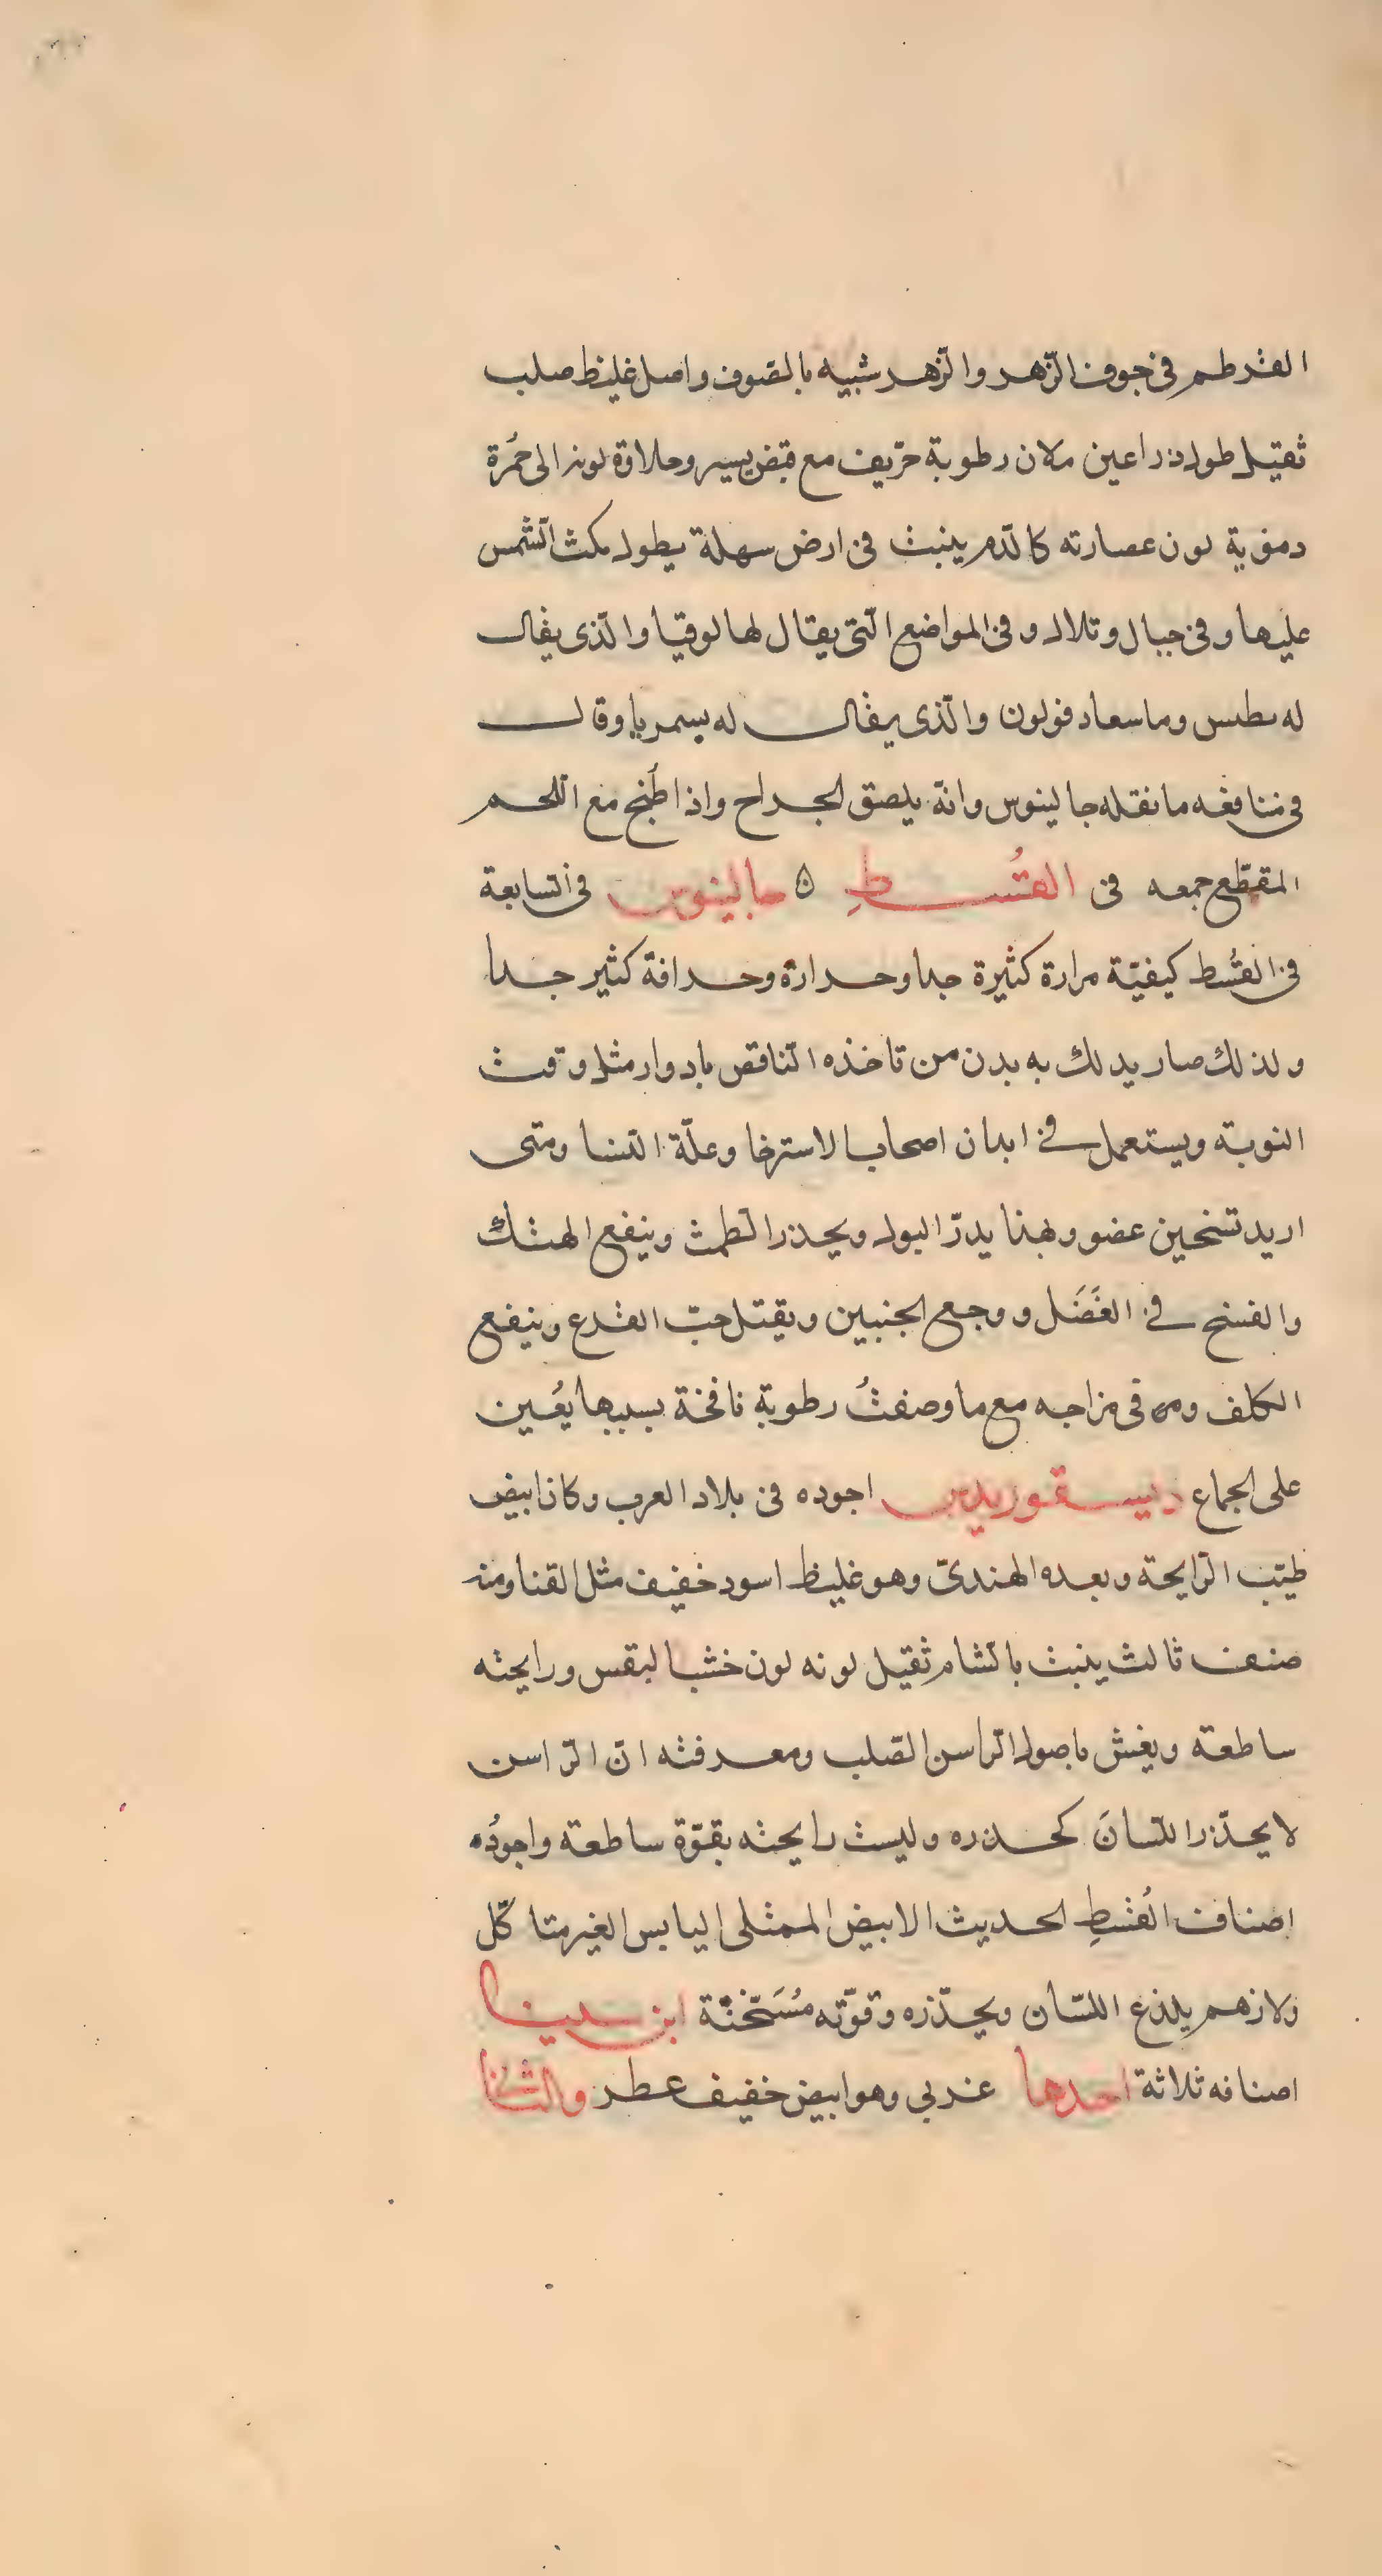 القرطم في جوف الزّهر والزّهر شبيه بالصّوف واصل غليظ صلب
ثقيل طوله ذراعين ملان رطوبة حرّيف مع قبض يسير وحلاوة لونه الى حُمرة
دمويّة لون عصارته كالدّم ينبت في ارض سهلة يطول مكث الشّمس
عليها وفي جبال وتلال وفي المواضع الّتي يقال لها لوقيا والّذى يقال
له بطس وماسعاد فولون والّذى يقال له بسمريا وقال
في منافعه ما نقله جالينوس وانّه يلصق الجراح واذا طُبخ مع اللّحم
المقطّع جمعه في القُسطِ ۞ جالينوس في السّابعة
في القُسط كيفيّة مرارة كثيرة جدا وحرارة وحرافة كثير جدا
ولذلك صار يدلك به بدن من تاخذه النّافض بادوار مثل وقت
النوبة ويستعمل في ابدان اصحاب الاسترخا وعلّة النّسا ومتى
اريد تسخين عضو ولهذا يدرّ البول ويحدر الطّمث وينفع الهتك
والفسخ في العَضَل ووجع الجنبين ويقتل حبّ القرع وينفع
الكلف وفى مزاجه مع ما وصفتُ رطوبة نافخة بسببها يُعين
على الجماع ديسقوريدس اجوده في بلاد العرب وكان ابيض
طيّب الرّايحة وبعده الهندىّ وهو غليظ اسود خفيف مثل القنا ومنه
صنف ثالث ينبت بالشّام ثقيل لونه لون خشب البقس ورايحته
ساطعة ويغش باصول الرّاسن الصّلب ومعرفته انّ الرّاسن
لا يحذّر اللّسانَ كحذره وليست رايحته بقوّة ساطعة واجودُه
اصناف القُسطِ الحديث الابيض الممتلى اليابس الغير متاكّل
ولا زهم يلذع اللسّان ويحذّره وقوّته مُسَخّنة ابن سينا
اصنافه ثلاثة احدها عربي وهو ابيض خفيف عطر والثانى